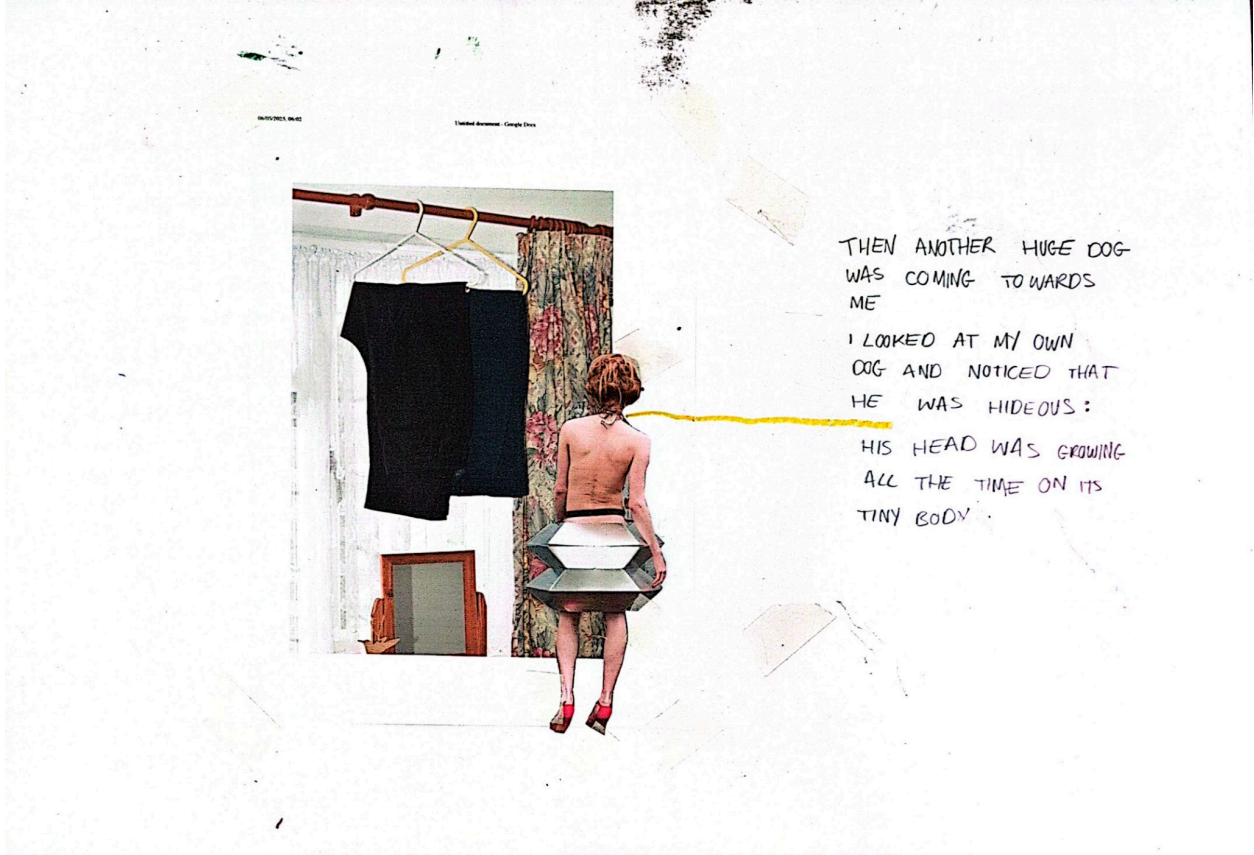 06/05/2025, 06:02
Untitled document - Google Docs
THEN ANOTHER HUGE DOG
WAS COMING TOWARDS
ME
I LOOKED AT MY OWN
DOG AND NOTICED THAT
HE WAS HIDEOUS:
HIS HEAD WAS GROWING
ALL THE TIME ON ITS
TINY BODY.